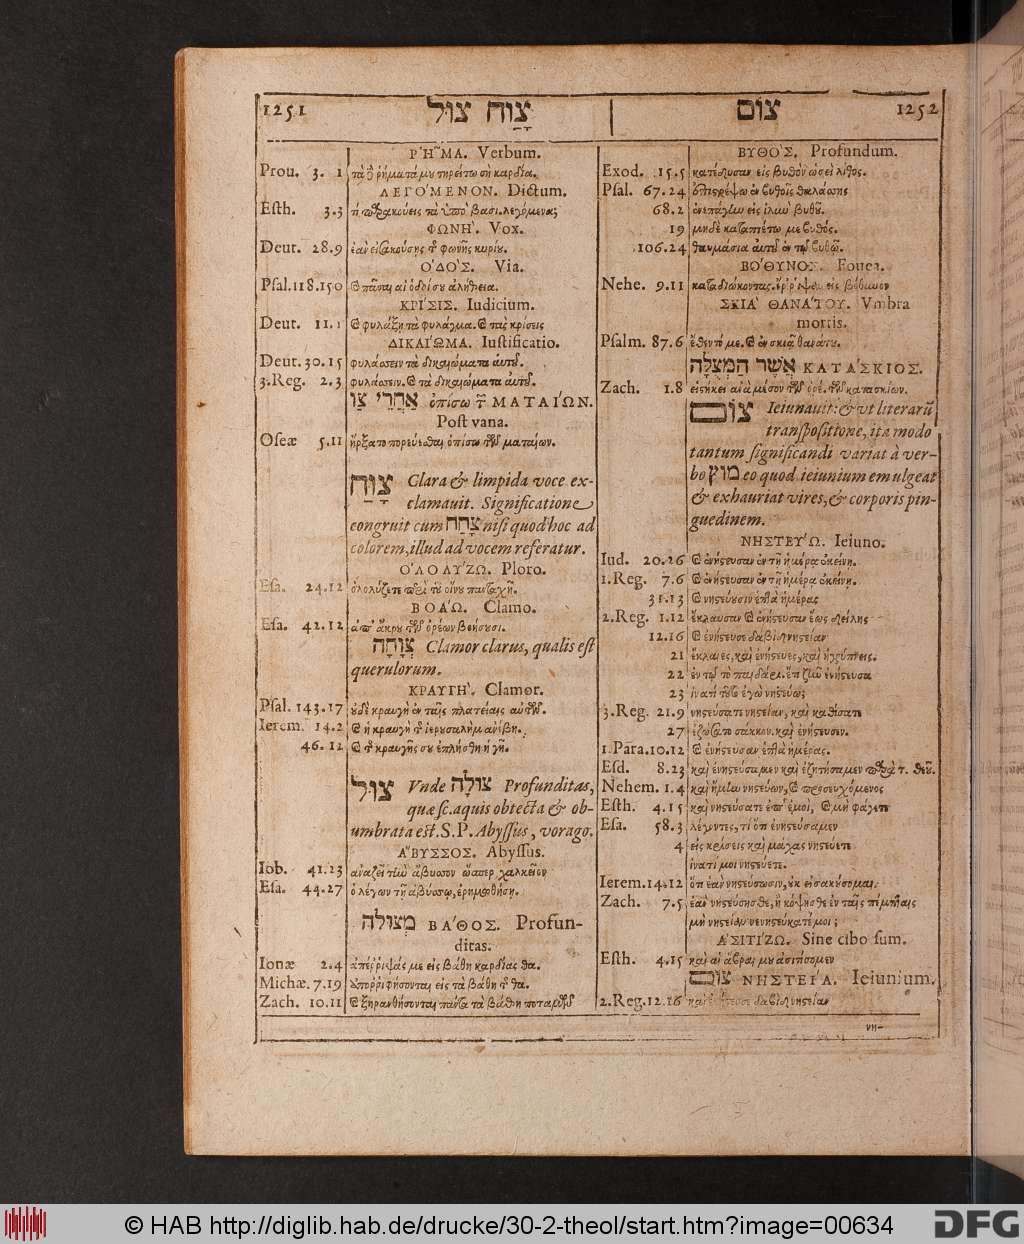 1251 צָוַח צוּל
ῬΗ͂ΜΑ. Verbum.
Prou. 3. 1 τὰ ῥήματά μου τηρείτω σὴ καρδία.
ΛΕΓΟΜΕΝΟΝ. Dictum.
Esth. 3.3 τί παρακούεις τὰ ὑπὸ βασι. λεγόμενα;
ΦΩΝΗ. Vox.
Deut. 28.9 ἐὰν εἰσακούσῃς τ φωνῆς κυρίου.
ὉΔΟΣ. Via.
Psal. 118.150 καὶ πᾶσαι αἱ ὁδοί σου ἀλήθεια.
ΚΡΙΣΙΣ. Iudicium.
Deut. 11.1 καὶ φυλάξῃ τὰ φυλάγμα. καὶ τὰς κρίσεις
ΔΙΚΑΙΩΜΑ. Iustificatio.
Deut. 30.15 φυλάσσειν τὰ δικαιώματα αὐτοῦ.
3.Reg. 2.3 φυλάσσειν. καὶ τὰ δικαιώματα αὐτοῦ.
אַחֲרֵי צַו ὀπίσω τῶν ΜΑΤΑΙΩΝ.
Post vana.
Oseæ 5.11 ἤρξατο πορεύεσθαι ὀπίσω τῶν ματαίων.
צָוַח Clara & limpida voce ex-
clamauit. Significatione
congruit cum צָחַח nisi quod hoc ad
colorem, illud ad vocem referatur.
ὈΛΟΛΥΖΩ. Ploro.
Esa. 24.12 ὀλολύζετε περὶ τοῦ οἴνου πανταχῆ.
ΒΟΑΩ. Clamo.
Esa. 42.12 ἀπ' ἄκρου τῶν ὀρέων βοήσουσι.
צְוָחָה Clamor clarus, qualis est
querulorum.
ΚΡΑΥΓΗ. Clamor.
Psal. 143.17 οὐδὲ κραυγὴ ἐν ταῖς πλατείαις αὐτῶν.
Ierem. 14.2 καὶ ἡ κραυγὴ τ ἱερουσαλὴμ ἀνέβη.
46.12 καὶ τ κραυγῆς σου ἐπλήσθη ἡ γῆ.
צוּל Vnde צוּלָה Profunditas,
quæ sc. aquis obtecta & ob-
umbrata est. S.P. Abyssus, vorago.
ἌΒΥΣΣΟΣ. Abyssus.
Iob. 41.23 ἀναζεῖ τὴν ἄβυσσον ὥσπερ χαλκεῖον
Esa. 44.27 ὁ λέγων τῇ ἀβύσσῳ, ἐρημωθήσῃ.
מְצוּלָה ΒΑΘΟΣ. Profun-
ditas.
Ionæ 2.4 ἀπέρριψάς με εἰς βάθη καρδίας θα.
Michæ. 7.19 ἀπορριφήσονται εἰς τὰ βάθη τ θα.
Zach. 10.11 καὶ ξηρανθήσονται πάντα τὰ βάθη ποταμῶν
צוֹם 1252
ΒΥΘΟΣ. Profundum.
Exod. 15.5 κατέδυσαν εἰς βυθὸν ὡσεὶ λίθος.
Psal. 67.24 ἐπιστρέψω ἐν βυθοῖς θαλάσσης
68.2 ἐνεπάγην εἰς ἰλὺν βυθοῦ.
19 μηδὲ καταπιέτω με βυθός.
106.24 θαυμάσια αὐτοῦ ἐν τῷ βυθῷ.
ΒΟΘΥΝΟΣ. Fouea.
Nehe. 9.11 καταδιώκοντας. ἔρριψας εἰς βόθυνον
ΣΚΙΑ ΘΑΝΑΤΟΥ. Vmbra
mortis.
Psalm. 87.6 ἔθεντό με. καὶ ἐν σκιᾷ θανάτου.
אֲשֶׁר הַמְּצֻלָּה ΚΑΤΑΣΚΙΟΣ.
Zach. 1.8 εἱστήκει ἀνὰ μέσον τῶν ὀρέ. τῶν κατασκίων.
צוֹם Ieiunauit: & vt literarũ
transpositione, ita modo
tantum significandi variat à ver-
bo מוץ eo quod ieiunium emulgeat
& exhauriat vires, & corporis pin-
guedinem.
ΝΗΣΤΕΥΩ. Ieiuno.
Iud. 20.26 καὶ ἐνήστευσαν ἐν τῇ ἡμέρᾳ ἐκείνῃ.
1.Reg. 7.6 καὶ ἐνήστευσαν ἐν τῇ ἡμέρᾳ ἐκείνῃ.
31.13 καὶ νηστεύουσιν ἑπτὰ ἡμέρας
2.Reg. 1.12 ἔκλαυσαν καὶ ἐνήστευσαν ἕως δείλης
12.16 καὶ ἐνήστευσε δαβὶδ νηστείαν
21 ἔκλαιες, καὶ ἐνήστευες, καὶ ἠγρύπνεις.
22 ἐν τῷ τὸ παιδάρι. ἔτι ζῆν ἐνήστευσα
23 ἱνατί τοῦτο ἐγὼ νηστεύω;
3.Reg. 21.9 νηστεύσατε νηστείαν, καὶ καθίσατε
27 ἐζώσατο σάκκον. καὶ ἐνήστευσεν.
1.Para. 10.12 καὶ ἐνήστευσαν ἑπτὰ ἡμέρας.
Esd. 8.23 καὶ ἐνηστεύσαμεν καὶ ἐζητήσαμεν παρὰ τ. θεοῦ.
Nehem. 1.4 καὶ ἤμην νηστεύων, καὶ προσευχόμενος
Esth. 4.15 καὶ νηστεύσατε ἐπ' ἐμοί, καὶ μὴ φάγετε
Esa. 58.3 λέγοντες, τί ὅτι ἐνηστεύσαμεν
4 εἰς κρίσεις καὶ μάχας νηστεύετε
ἱνατί μοι νηστεύετε.
Ierem. 14.12 ὅτι ἐὰν νηστεύσωσιν, οὐκ εἰσακούσομαι.
Zach. 7.5 ἐὰν νηστεύσησθε, ἢ κόψησθε ἐν ταῖς πέμπταις
μὴ νηστείαν νενηστεύκατέ μοι;
ἈΣΙΤΙΖΩ. Sine cibo sum.
Esth. 4.15 καὶ αἱ ἅβραι μου ἀσιτήσομεν
צוֹם ΝΗΣΤΕΙΑ. Ieiunium.
2.Reg. 12.16 καὶ ἐνήστευσε δαβὶδ νηστείαν
νη-
© HAB http://diglib.hab.de/drucke/30-2-theol/start.htm?image=00634
DFG